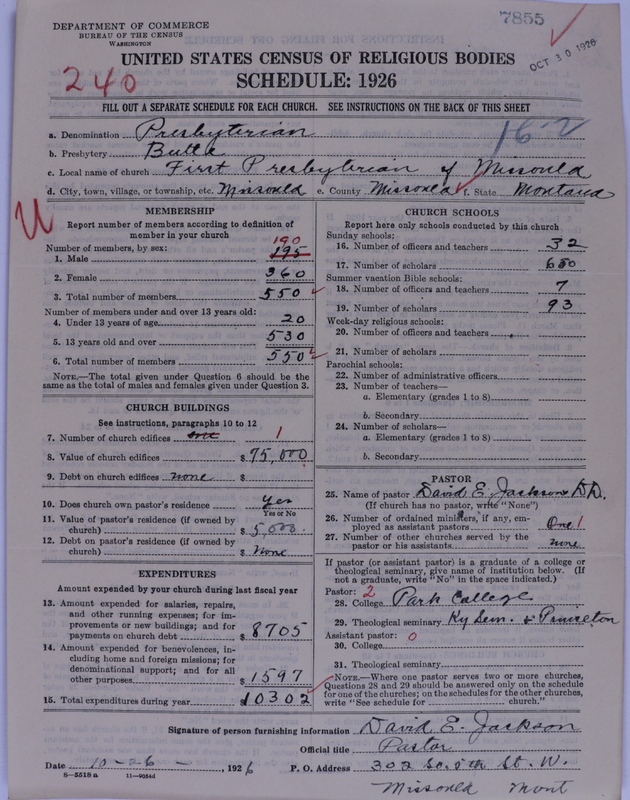 DEPARTMENT OF COMMERCE
BUREAU OF THE CENSUS
WASHINGTON
7855
OCT 30 1926
UNITED STATES CENSUS OF RELIGIOUS BODIES
240
SCHEDULE: 1926
FILL OUT A SEPARATE SCHEDULE FOR EACH CHURCH. SEE INSTRUCTIONS ON THE BACK OF THIS SHEET
a. Denomination Presbyterian
16-2
b. Presbytery Butte
c. Local name of church First Presbyterian of Missoula
d. City, town, village, or township, etc. Missoula e. County Missoula f. State Montana
U
MEMBERSHIP
Report number of members according to definition of
member in your church
Number of members, by sex:
190
1. Male 195
2. Female 360
3. Total number of members 550
Number of members under and over 13 years old:
4. Under 13 years of age 20
5. 13 years old and over 530
6. Total number of members 550
NOTE.—The total given under Question 6 should be
the same as the total of males and females given under Question 3.
CHURCH BUILDINGS
See instructions, paragraphs 10 to 12
7. Number of church edifices one 1
8. Value of church edifices $75,000
9. Debt on church edifices none $
10. Does church own pastor's residence Yes
Yes or No
11. Value of pastor's residence (if owned by
church) $5,000
12. Debt on pastor's residence (if owned by
church) $ None
EXPENDITURES
Amount expended by your church during last fiscal year
13. Amount expended for salaries, repairs,
and other running expenses; for im-
provements or new buildings; and for
payments on church debt $8705
14. Amount expended for benevolences, in-
cluding home and foreign missions; for
denominational support; and for all
other purposes $1597
15. Total expenditures during year $10302
CHURCH SCHOOLS
Report here only schools conducted by this church
Sunday schools:
16. Number of officers and teachers 32
17. Number of scholars 650
Summer vacation Bible schools:
18. Number of officers and teachers 7
19. Number of scholars 93
Week-day religious schools:
20. Number of officers and teachers
21. Number of scholars
Parochial schools:
22. Number of administrative officers
23. Number of teachers—
a. Elementary (grades 1 to 8)
b. Secondary
24. Number of scholars—
a. Elementary (grades 1 to 8)
b. Secondary
PASTOR
25. Name of pastor David E. Jackson D.D.
(If church has no pastor, write "None")
26. Number of ordained ministers, if any, em-
ployed as assistant pastors One 1
27. Number of other churches served by the
pastor or his assistants none
If pastor (or assistant pastor) is a graduate of a college or
theological seminary, give name of institution below. (If
not a graduate, write "No" in the space indicated.)
Pastor: 2
28. College Park College
29. Theological seminary Ky Sem. & Princeton
Assistant pastor: 0
30. College
31. Theological seminary
NOTE.—Where one pastor serves two or more churches,
Questions 28 and 29 should be answered only on the schedule
for one of the churches; on the schedules for the other churches,
write "See schedule for church."
Signature of person furnishing information David E. Jackson
Official title Pastor
Date 10-26-, 1926 P. O. Address 302 So. 5th St. W.
8—5518 a 11—9054d
Missoula Mont